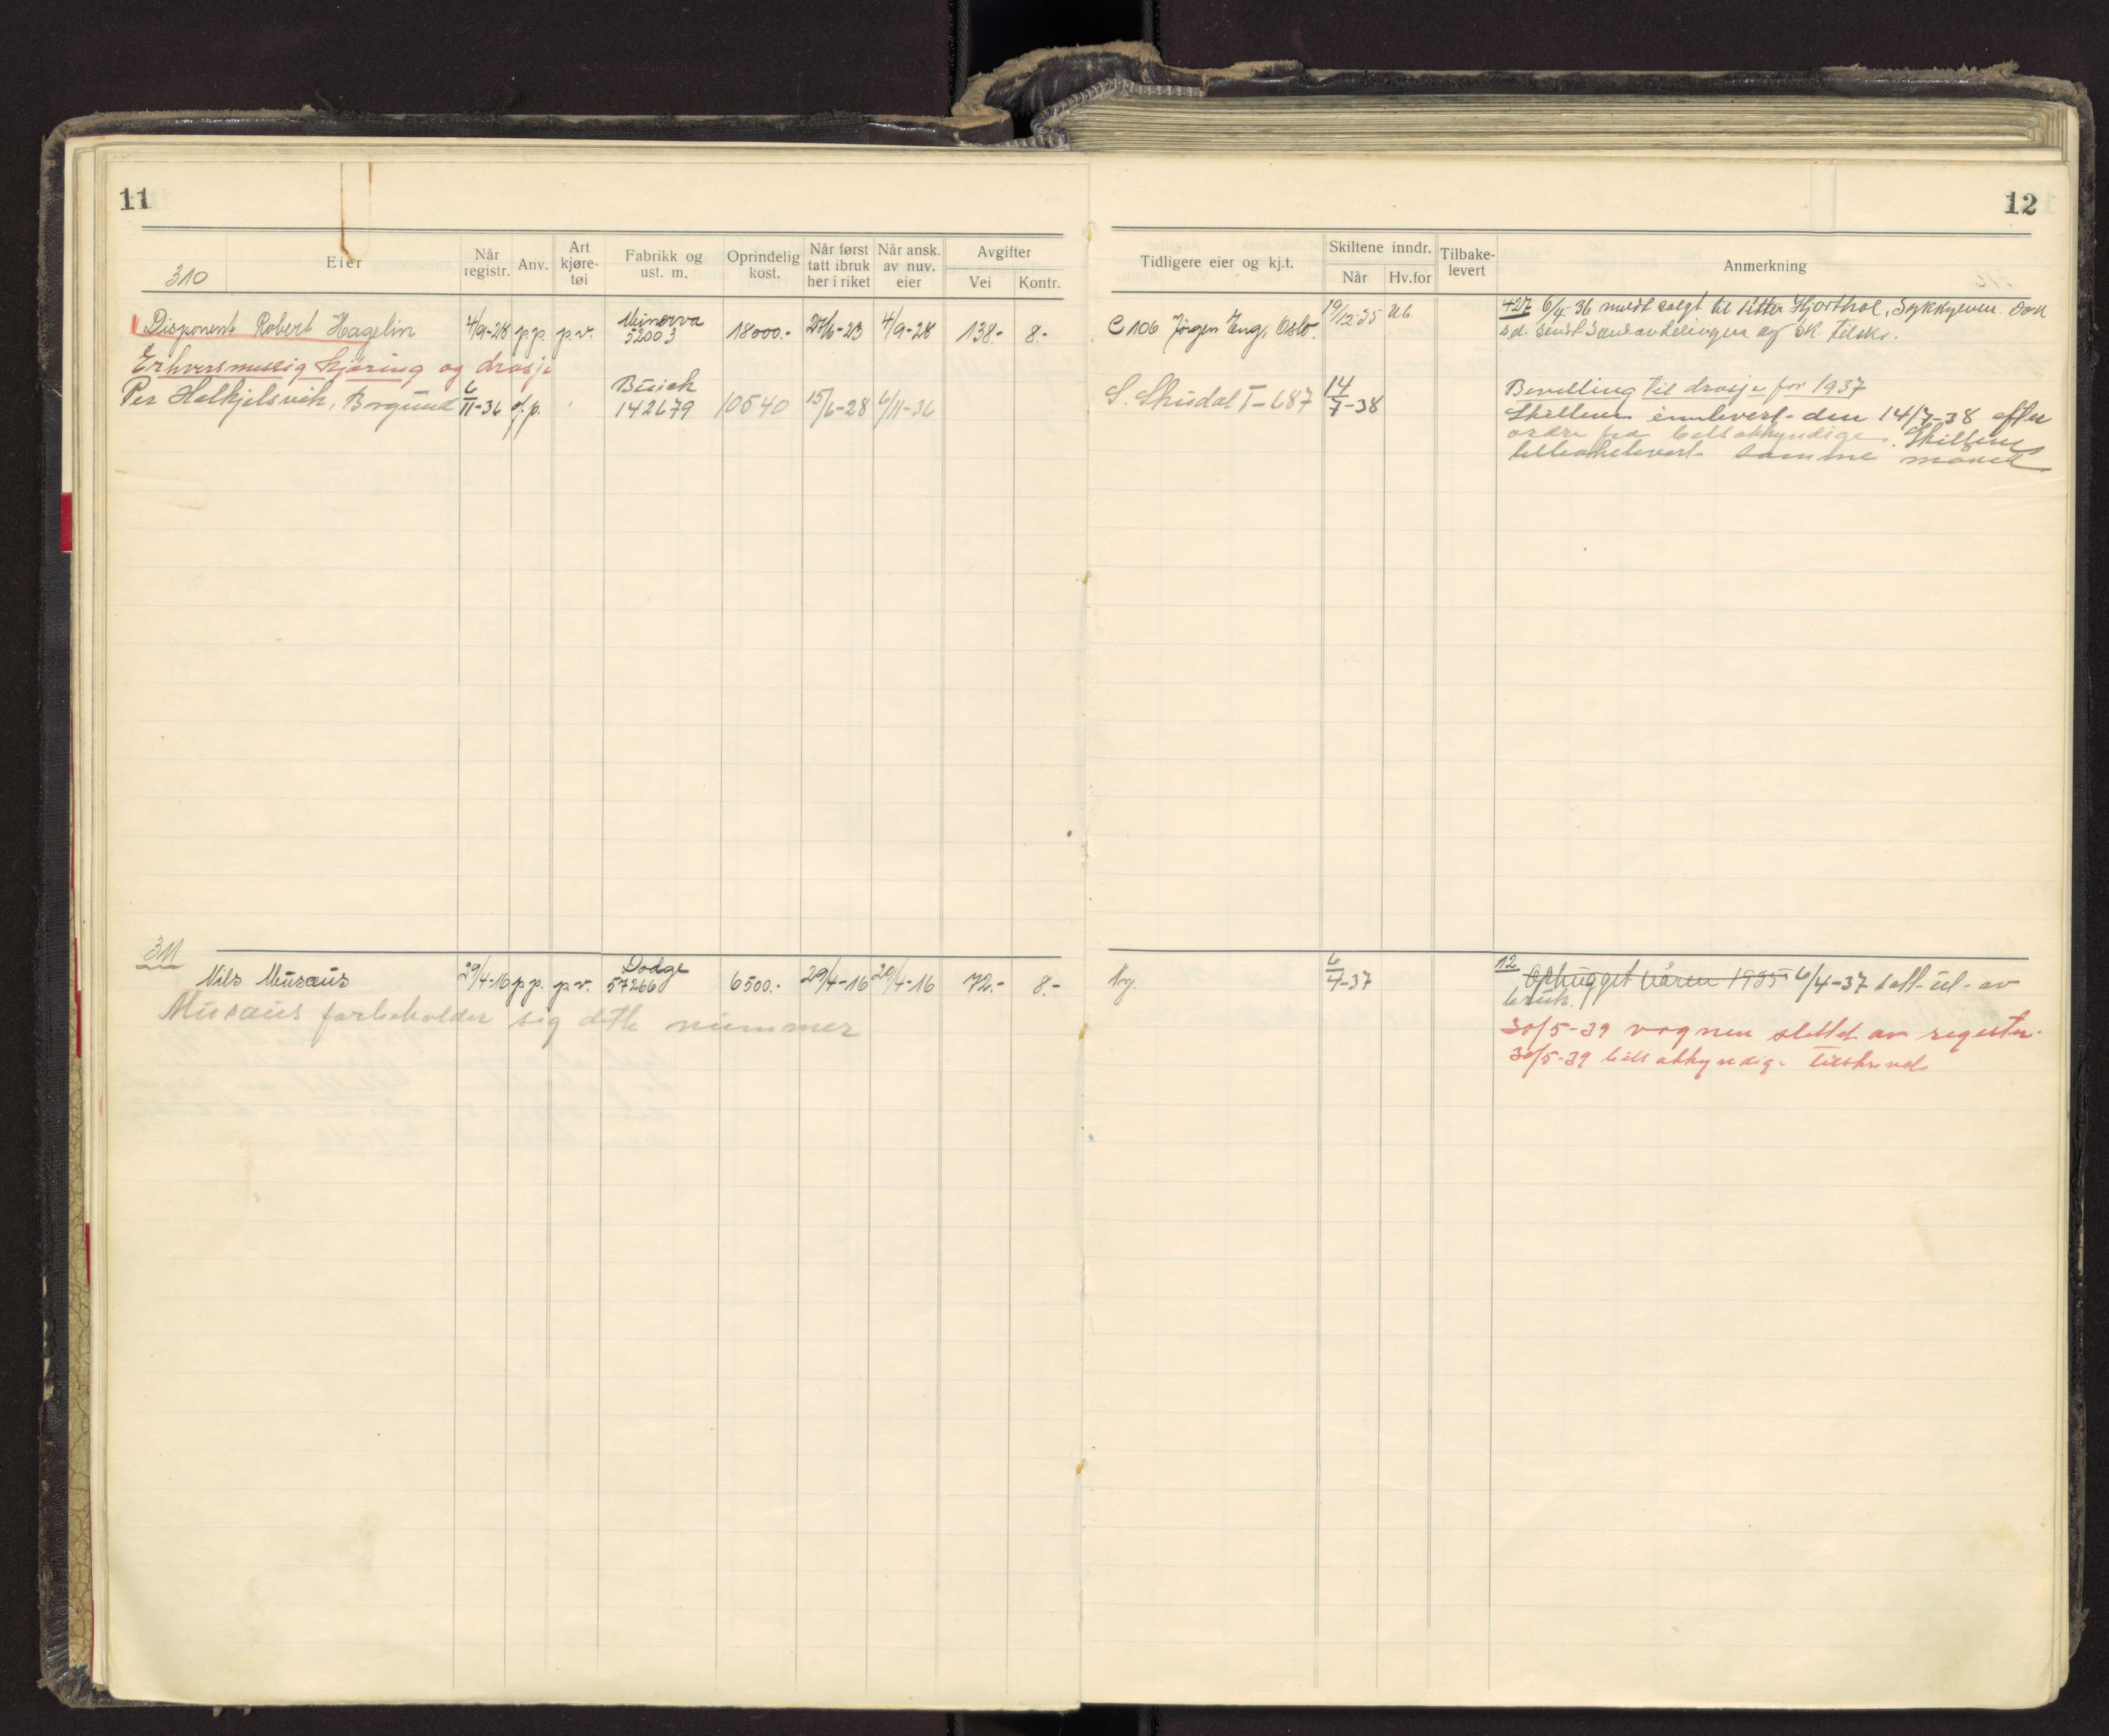 11
310
Eier
Når registr.
Anv.
Art kjøre-tøi
Fabrikk og ust. m.
Oprindelig kost.
Når først tatt ibruk her i riket
Når ansk. av nuv. eier
Avgifter
Vei
Kontr.
Disponent Robert Hagelin 4/9-28 p.p. p.v. Minerva 52003 18000.- 27/6-23 4/9-28 138.- 8.-
Erhversmessig kjøring og drosje
Per Holkjelsvik, Borgund 6/11-36 Buick 142679 10540 15/6-28 6/11-36
311
Nils Musæus 29/4-16 p.p. p.v. Dodge 57266 6500.- 29/4-16 29/4-16 72.- 8.-
Musæus forbeholder sig dette nummer
12
Tidligere eier og kj.t.
Skiltene inndr.
Når
Hv.for
Tilbake-levert
Anmerkning
C 106 Jørgen Eng, Oslo. 19/12-35 Ub. 427 6/4-36 meldt solgt til Hjorthol, Sykkylven.
og sk. tilskr.
S. Skudal T-687 14/7-38 Bevilling til drosje for 1937
Skiltene innlevert den 14/7-38 efter
ordre fra bilsakkyndige. Skiltene
tilbakelevert samme måned
Ny. 6/4-37 12 Ophugget våren 1935 6/4-37 satt ut av
bruk.
30/5-39 vognen slettet av register.
30/5-39 bilsakkyndige tilskrevet